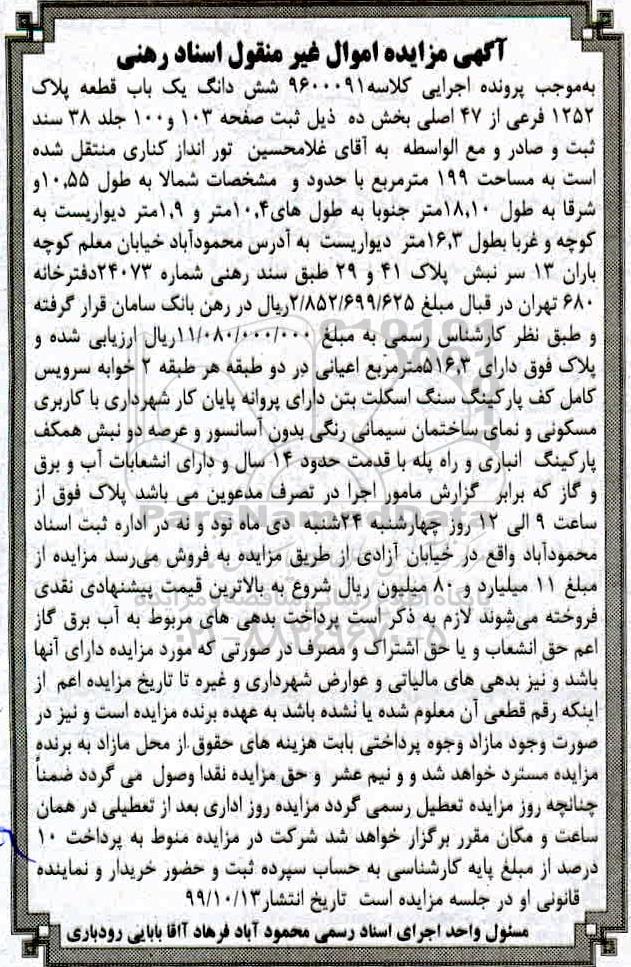 آگهی مزایده اموال غیر منقول اسناد رهنی
به‌موجب پرونده اجرایی کلاسه۹۶۰۰۰۹۱ شش دانگ یک باب قطعه پلاک
۱۲۵۲ فرعی از ۴۷ اصلی بخش ده ذیل ثبت صفحه ۱۰۳ و۱۰۰ جلد ۳۸ سند
ثبت و صادر و مع الواسطه به آقای غلامحسین تور انداز کناری منتقل شده
است به مساحت ۱۹۹ مترمربع با حدود و مشخصات شمالا به طول ۱۰,۵۵و
شرقا به طول ۱۸,۱۰متر جنوبا به طول های۱۰,۴متر و ۱,۹متر دیواریست به
کوچه و غربا بطول ۱۶,۳متر دیواریست به آدرس محمودآباد خیابان معلم کوچه
باران ۱۳ سر نبش پلاک ۴۱ و ۲۹ طبق سند رهنی شماره ۲۴۰۷۳دفترخانه
۶۸۰ تهران در قبال مبلغ ۲/۸۵۲/۶۹۹/۶۲۵ریال در رهن بانک سامان قرار گرفته
و طبق نظر کارشناس رسمی به مبلغ ۱۱/۰۸۰/۰۰۰/۰۰۰ریال ارزیابی شده و
پلاک فوق دارای ۵۱۶,۳مترمربع اعیانی در دو طبقه هر طبقه ۲ خوابه سرویس
کامل کف پارکینگ سنگ اسکلت بتن دارای پروانه پایان کار شهرداری با کاربری
مسکونی و نمای ساختمان سیمانی رنگی بدون آسانسور و عرصه دو نبش همکف
پارکینگ انباری و راه پله با قدمت حدود ۱۴ سال و دارای انشعابات آب و برق
و گاز که برابر گزارش مامور اجرا در تصرف مدعوین می باشد پلاک فوق از
ساعت ۹ الی ۱۲ روز چهارشنبه ۲۴شنبه دی ماه نود و نه در اداره ثبت اسناد
محمودآباد واقع در خیابان آزادی از طریق مزایده به فروش می‌رسد مزایده از
مبلغ ۱۱ میلیارد و ۸۰ میلیون ریال شروع به بالاترین قیمت پیشنهادی نقدی
فروخته می‌شوند لازم به ذکر است پرداخت بدهی های مربوط به آب برق گاز
اعم حق انشعاب و یا حق اشتراک و مصرف در صورتی که مورد مزایده دارای آنها
باشد و نیز بدهی های مالیاتی و عوارض شهرداری و غیره تا تاریخ مزایده اعم از
اینکه رقم قطعی آن معلوم شده یا نشده باشد به عهده برنده مزایده است و نیز در
صورت وجود مازاد وجوه پرداختی بابت هزینه های حقوق از محل مازاد به برنده
مزایده مسترد خواهد شد و و نیم عشر و حق مزایده نقدا وصول می گردد ضمناً
چنانچه روز مزایده تعطیل رسمی گردد مزایده روز اداری بعد از تعطیلی در همان
ساعت و مکان مقرر برگزار خواهد شد شرکت در مزایده منوط به پرداخت ۱۰
درصد از مبلغ پایه کارشناسی به حساب سپرده ثبت و حضور خریدار و نماینده
قانونی او در جلسه مزایده است تاریخ انتشار۹۹/۱۰/۱۳
مسئول واحد اجرای اسناد رسمی محمود آباد فرهاد آاقا بابایی رودباری
ParsNamadData